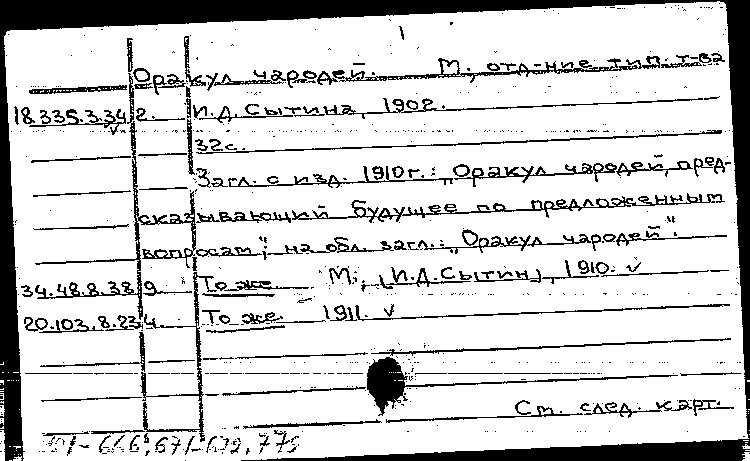 Оракул чародей. М., отд-ние тип. т-ва
18.335.3.342. И.Д. Сытина, 1902.
32с.
Загл. с изд. 1910г.: „Оракул чародей, пред-
сказывающий будущее по предложенным
вопросам"; на обл. загл.: „Оракул чародей".
34.48.8.389. То же. М., [И.Д. Сытин], 1910. ✓
20.103.8.234. То же. 1911. ✓
См. след. карт.
666, 671-672, 775